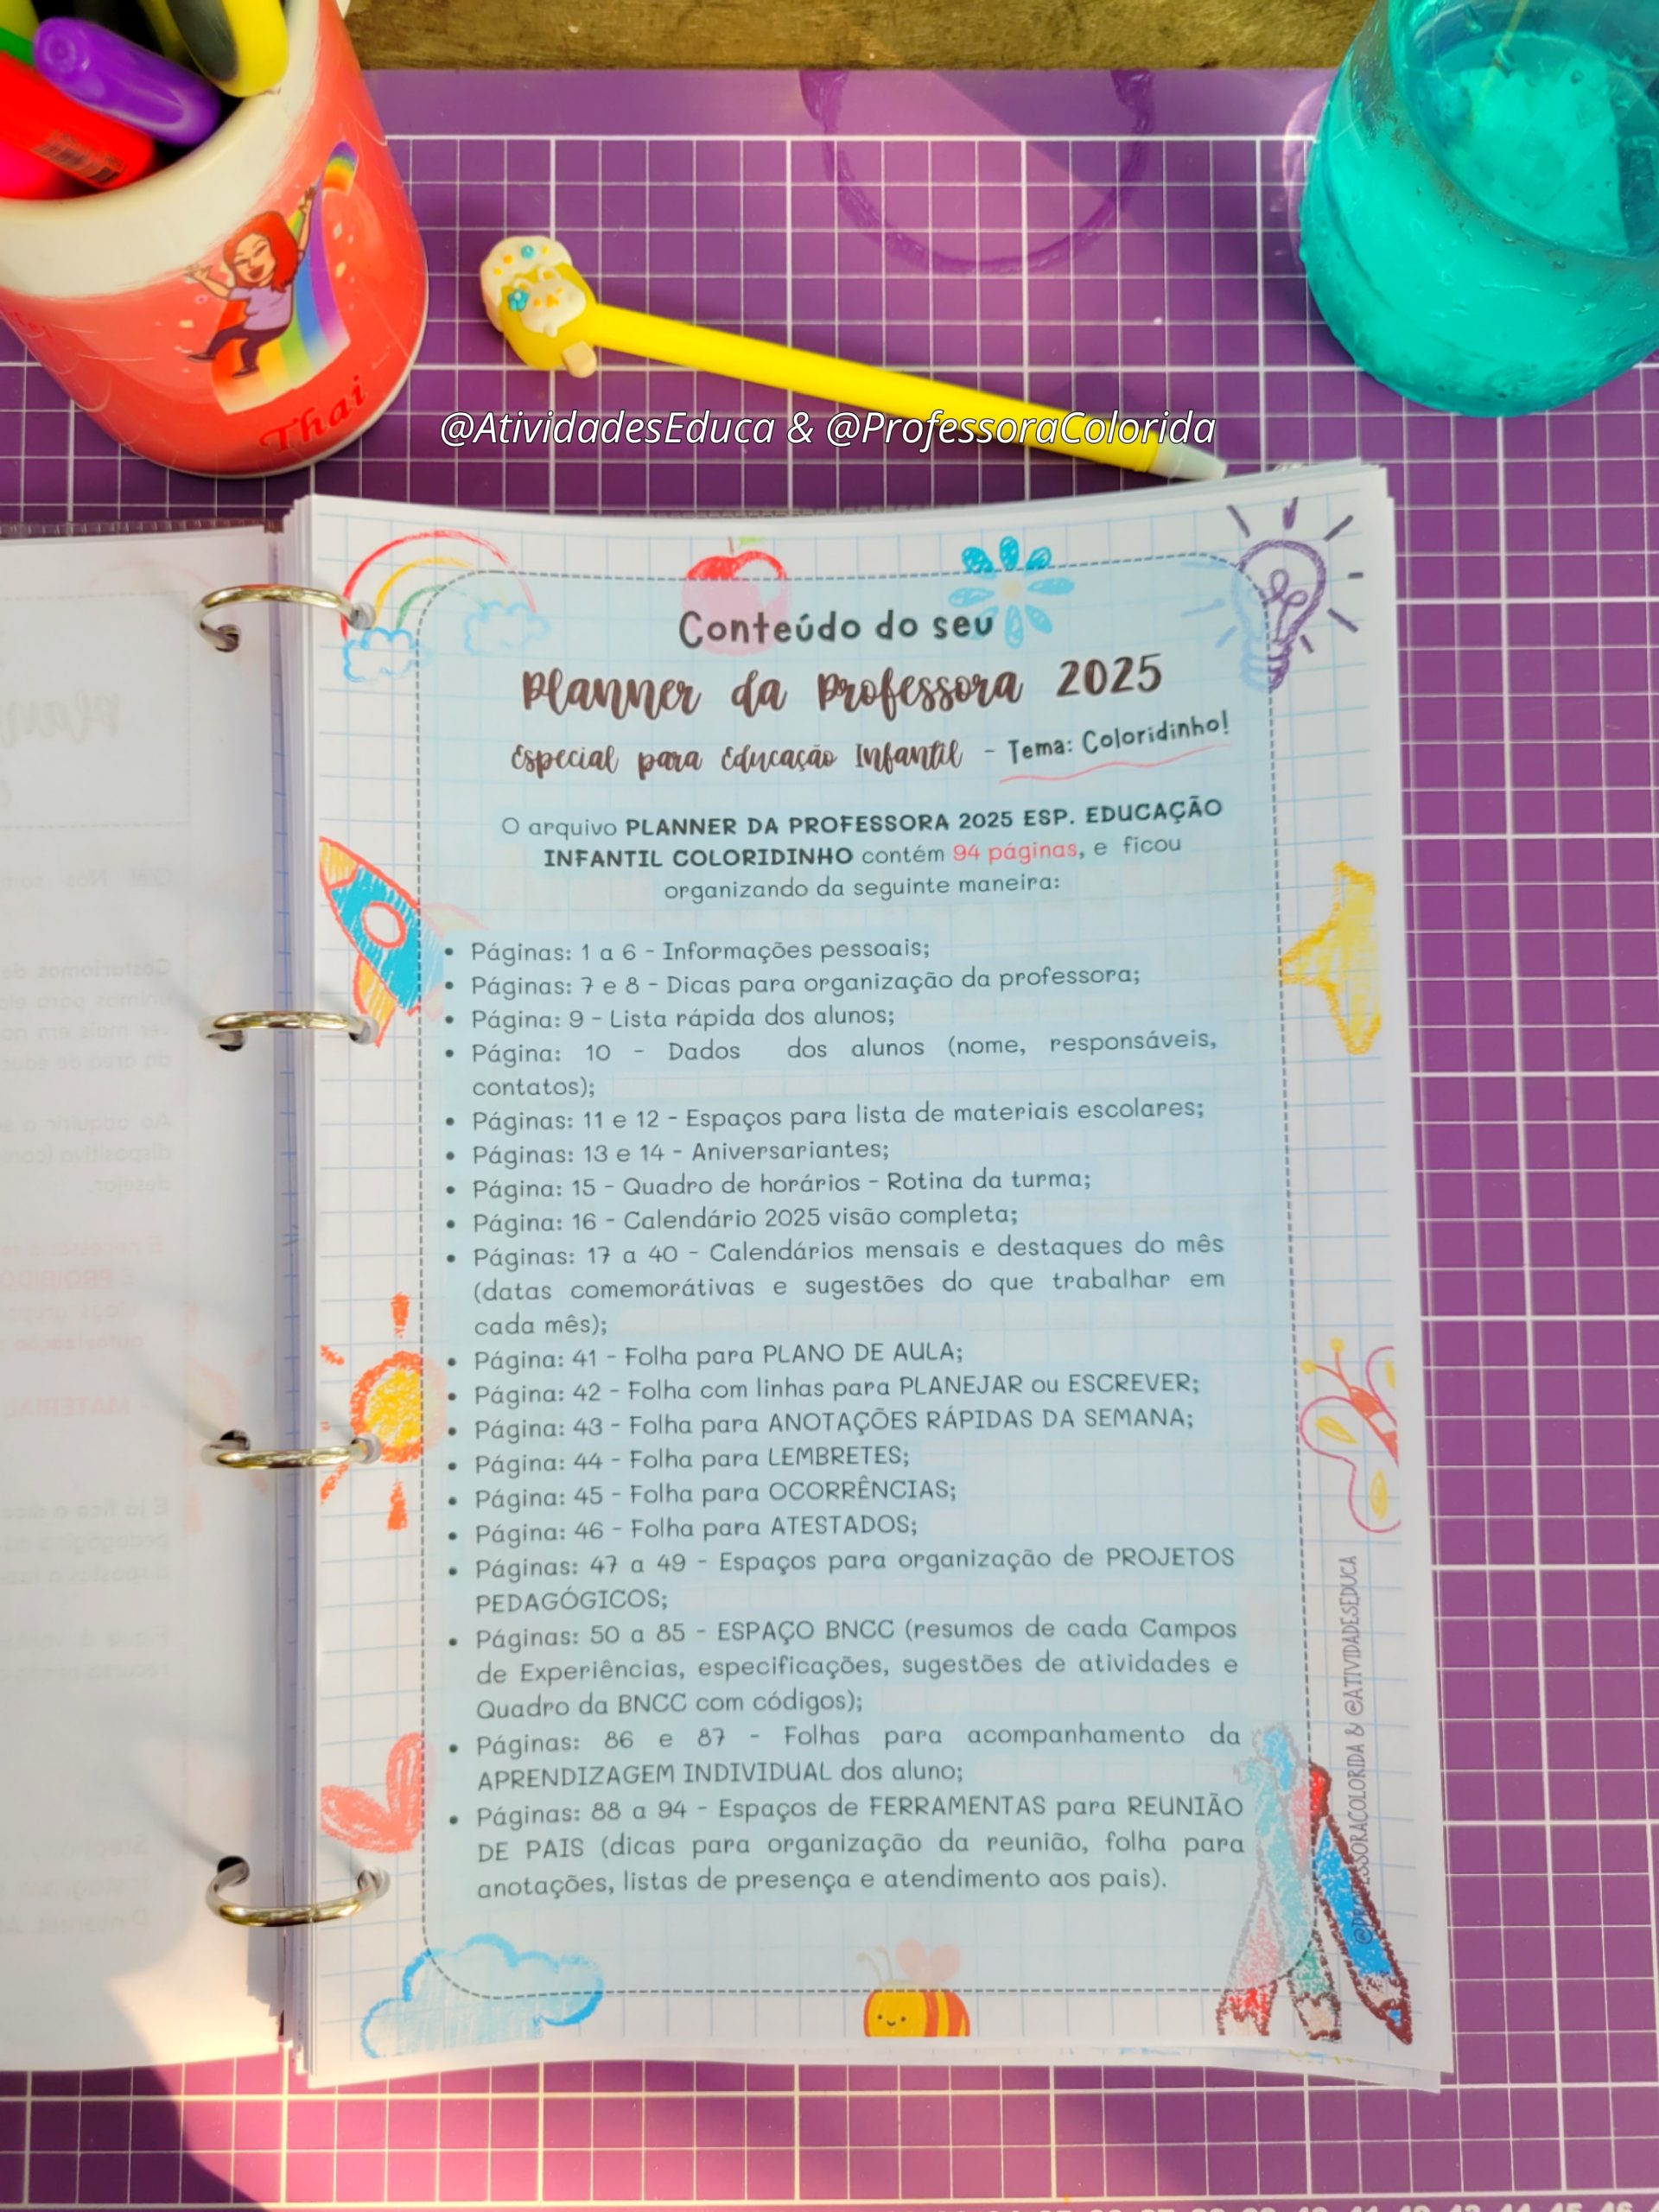 Thai
@AtividadesEduca & @ProfessoraColorida
Conteúdo do seu
Planner da Professora 2025
Especial para Educação Infantil - Tema: Coloridinho!
O arquivo PLANNER DA PROFESSORA 2025 ESP. EDUCAÇÃO
INFANTIL COLORIDINHO contém 94 páginas, e ficou
organizando da seguinte maneira:
• Páginas: 1 a 6 - Informações pessoais;
• Páginas: 7 e 8 - Dicas para organização da professora;
• Página: 9 - Lista rápida dos alunos;
• Página: 10 - Dados dos alunos (nome, responsáveis,
contatos);
• Páginas: 11 e 12 - Espaços para lista de materiais escolares;
• Páginas: 13 e 14 - Aniversariantes;
• Página: 15 - Quadro de horários - Rotina da turma;
• Página: 16 - Calendário 2025 visão completa;
• Páginas: 17 a 40 - Calendários mensais e destaques do mês
(datas comemorátivas e sugestões do que trabalhar em
cada mês);
• Página: 41 - Folha para PLANO DE AULA;
• Página: 42 - Folha com linhas para PLANEJAR ou ESCREVER;
• Página: 43 - Folha para ANOTAÇÕES RÁPIDAS DA SEMANA;
• Página: 44 - Folha para LEMBRETES;
• Página: 45 - Folha para OCORRÊNCIAS;
• Página: 46 - Folha para ATESTADOS;
• Páginas: 47 a 49 - Espaços para organização de PROJETOS
PEDAGÓGICOS;
• Páginas: 50 a 85 - ESPAÇO BNCC (resumos de cada Campos
de Experiências, especificações, sugestões de atividades e
Quadro da BNCC com códigos);
• Páginas: 86 e 87 - Folhas para acompanhamento da
APRENDIZAGEM INDIVIDUAL dos aluno;
• Páginas: 88 a 94 - Espaços de FERRAMENTAS para REUNIÃO
DE PAIS (dicas para organização da reunião, folha para
anotações, listas de presença e atendimento aos pais).
@PROFESSORACOLORIDA & @ATIVIDADESEDUCA